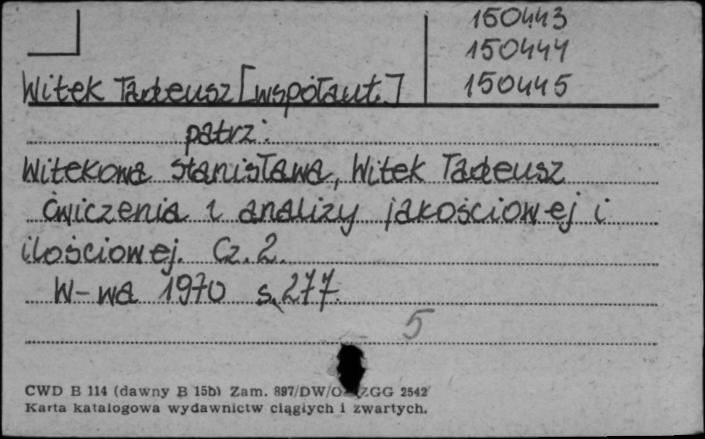 150443
150444
150445
Witek Tadeusz [współaut.]
patrz:
Witekowa Stanisława, Witek Tadeusz
Ćwiczenia z analizy jakościowej i
ilościowej. Cz. 2.
W-wa 1970 s. 277.
5
CWD B 114 (dawny B 15b) Zam. 897/DW/O ZGG 2542
Karta katalogowa wydawnictw ciągłych i zwartych.